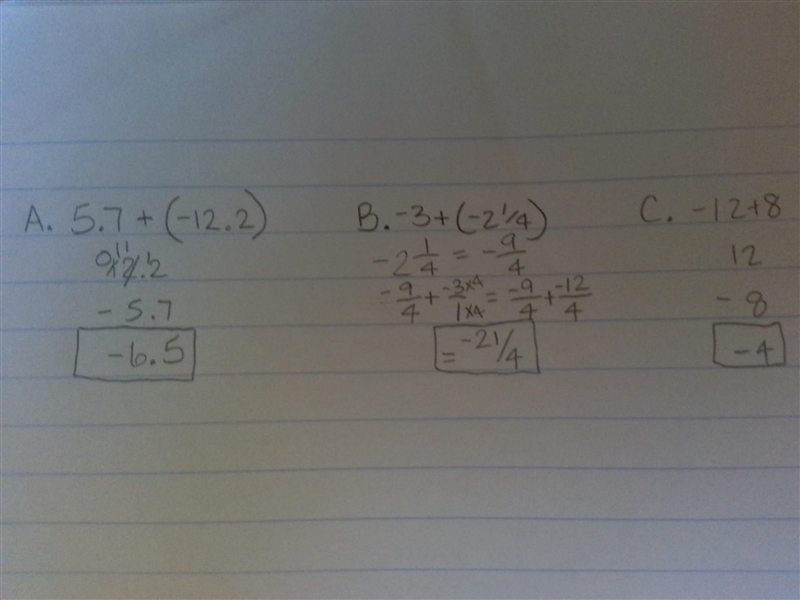 A. 5.7 + (-12.2)
0 11 1
12.2
- 5.7
-6.5
B. -3 + (-2 1/4)
-2 1/4 = -9/4
-9/4 + -3×4/1×4 = -9/4 + -12/4
= -21/4
C. -12+8
12
- 8
-4